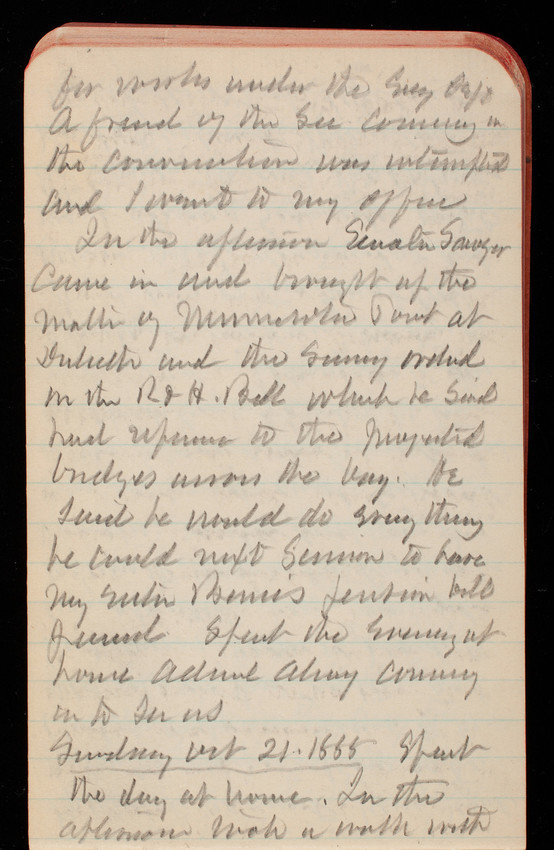 for works under the Engr Dept
A friend of the Sec coming in
the conversation was interrupted
and I went to my office
In the afternoon Senator Sawyer
came in and brought up the
matter of Minnesota Point at
Duluth and the Survey ordered
in the R & H. Bill which he said
had reference to the projected
bridges across the bay. He
said he would do everything
he could next Session to have
my sister pension bill
passed. Spent the Evening at
home coming
in to see us
Sunday Oct 21. 1888 Spent
the day at home. In the
afternoon took a walk with